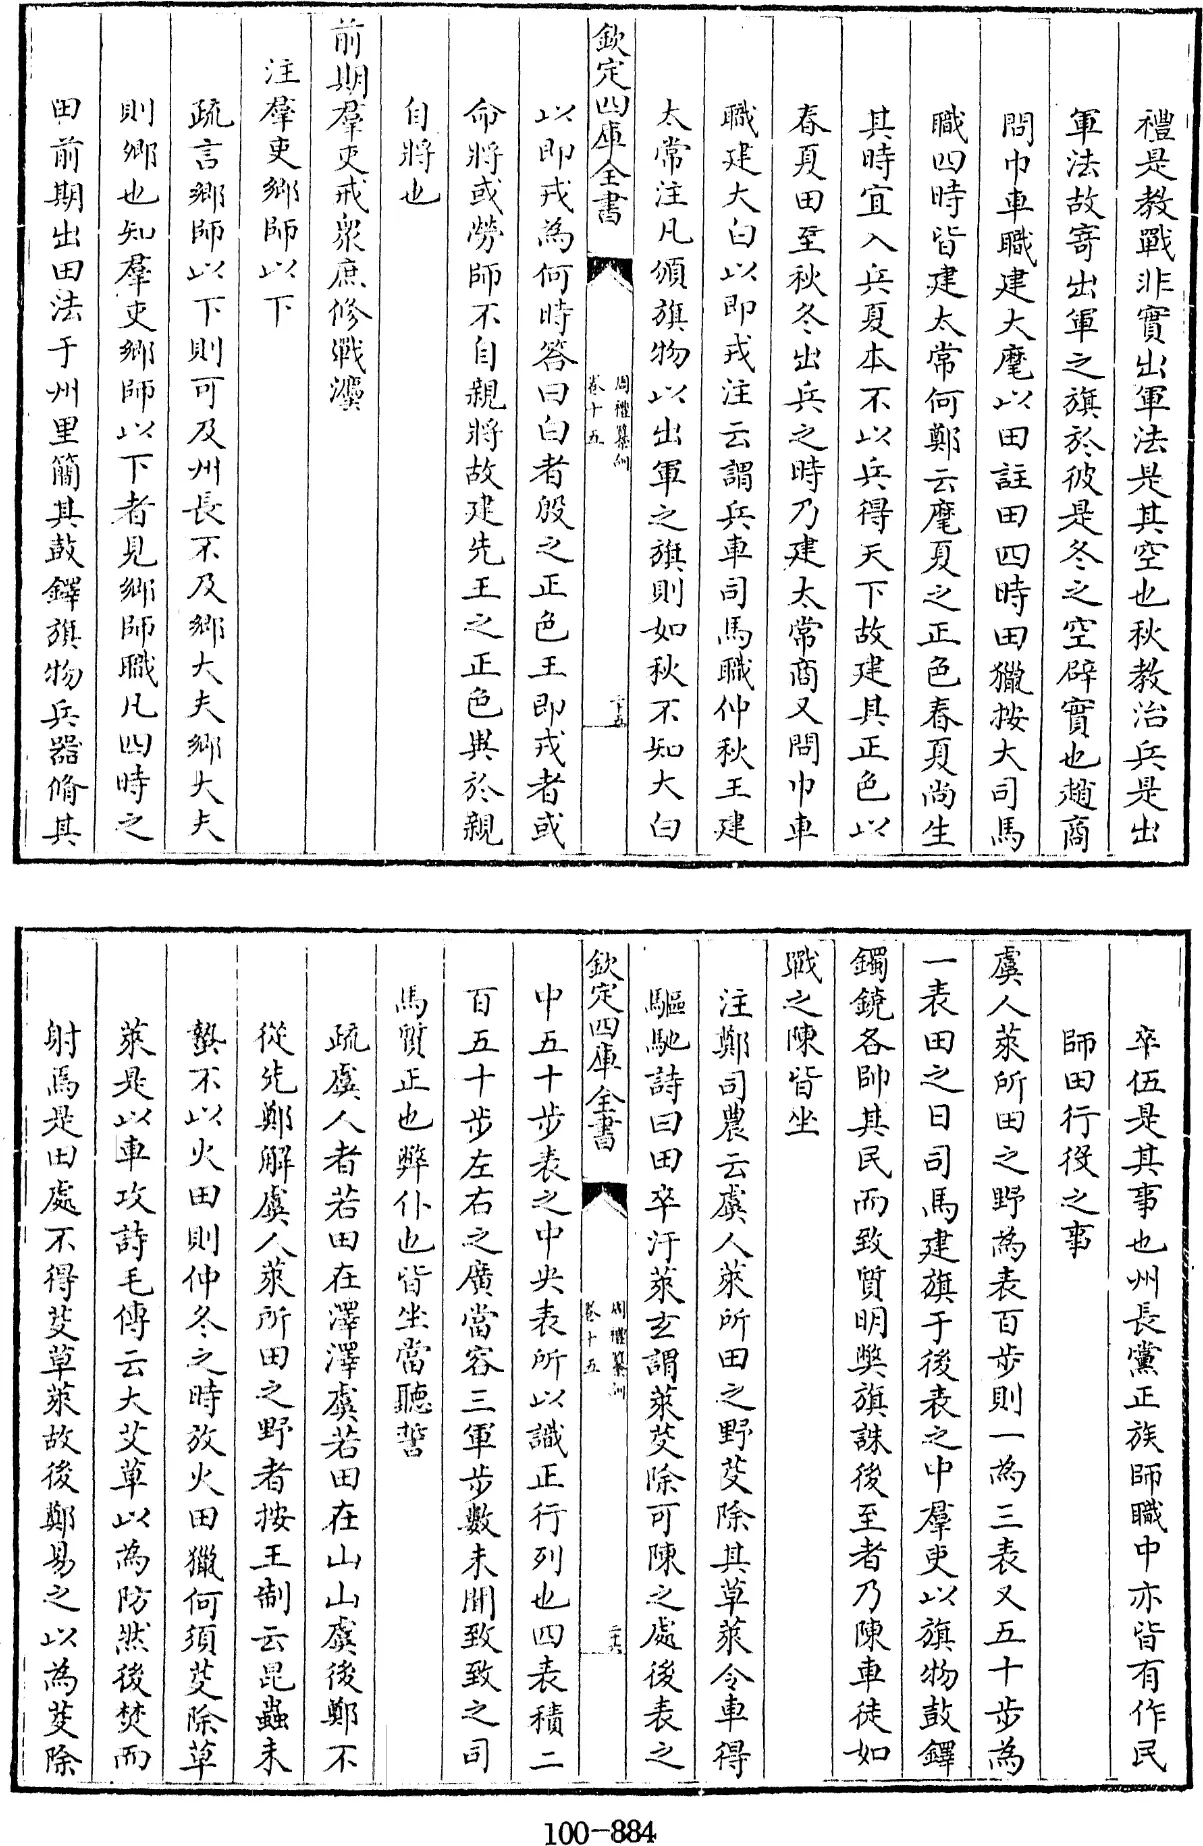 禮是教戰非實出軍法是其空也秋教治兵是出
軍法故寄出軍之旗於彼是冬之空辟實也趙商
問巾車職建大麾以田註田四時田獵按大司馬
職四時皆建太常何鄭云麾夏之正色春夏尚生
其時宜入兵夏本不以兵得天下故建其正色以
春夏田至秋冬出兵之時乃建太常商又問巾車
職建大白以即戎注云謂兵車司馬職仲秋王建
太常注凡頒旗物以出軍之旗則如秋不知大白
欽定四庫全書
周禮纂訓
卷十五
二十五
以即戎為何時答曰白者殷之正色王即戎者或
命將或勞師不自親將故建先王之正色異於親
自將也
前期羣吏戒衆庶修戰灋
注羣吏鄉師以下
疏言鄉師以下則可及州長不及鄉大夫鄉大夫
則鄉也知羣吏鄉師以下者見鄉師職凡四時之
田前期出田法于州里簡其鼓鐸旗物兵器脩其
卒伍是其事也州長黨正族師職中亦皆有作民
師田行役之事
虞人萊所田之野為表百步則一為三表又五十步為
一表田之日司馬建旗于後表之中羣吏以旗物鼓鐸
鐲鐃各帥其民而致質明弊旗誅後至者乃陳車徒如
戰之陳皆坐
注鄭司農云虞人萊所田之野芟除其草萊令車得
驅馳詩曰田卒汙萊玄謂萊芟除可陳之處後表之
欽定四庫全書
周禮纂訓
卷十五
二十六
中五十步表之中央表所以識正行列也四表積二
百五十步左右之廣當容三軍步數未聞致致之司
馬質正也弊仆也皆坐當聽誓
疏虞人者若田在澤澤虞若田在山山虞後鄭不
從先鄭解虞人萊所田之野者按王制云昆蟲未
蟄不以火田則仲冬之時放火田獵何須芟除草
萊是以車攻詩毛傳云大艾草以為防然後焚而
射焉是田處不得芟草萊故後鄭易之以為芟除
100-884